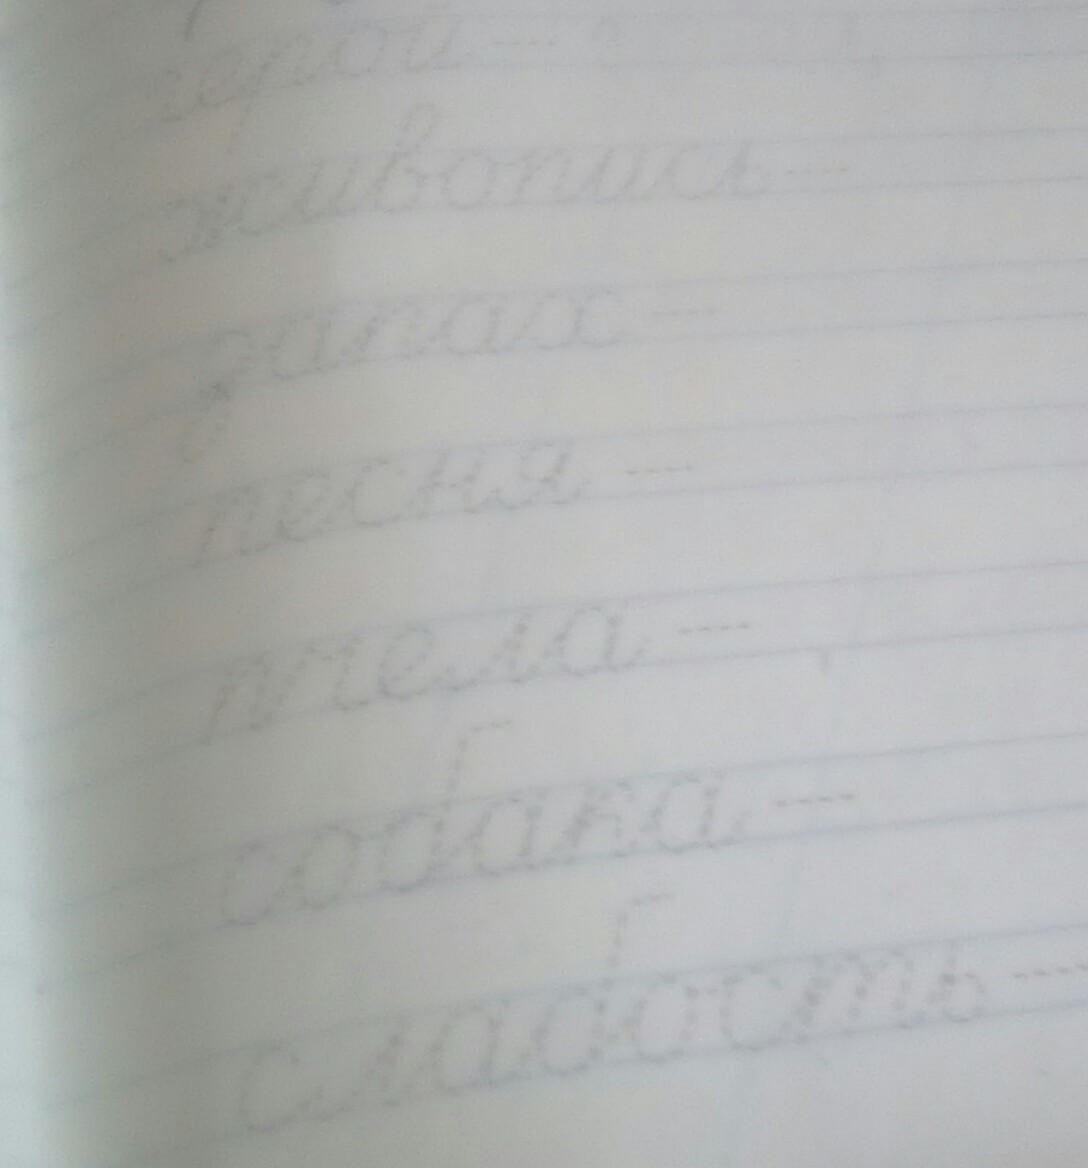 герой —
живопись —
запах —
песня —
пчела —
собака —
слабость —